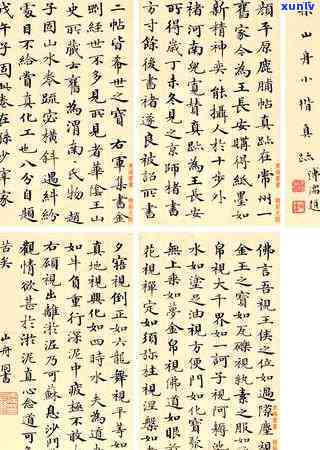 山舟小楷真跡
顏平原鹿脯帖真跡在常州一
舊家今為王長安購得紙墨如
新精神奕能攝人於十步外
褚河南兒寬贊真跡為王長安
所得歲丁未冬見之京師褚書
方寸餘後書褚遂良被詔書
二帖皆希世之寶右軍集書金
剛經世不多見所見者華陰王山
史所藏舊為渭南氏物
子固山水卷疏密橫斜遇糾紛
處目不給賞真化工也八分自題
戊午子固此卷在孫少宰家
佛言吾視王侯之位如過隙塵視
金玉之寶如瓦礫視紈素之服如敝
帛視大千界如一訶子視阿耨池
水如塗足油視方便門如化寶聚
無上乘如夢金帛視佛道如眼前
花視禪定如須彌柱視涅槃如
夕寤視倒正如六龍舞視平等如一
真地視興化如四時水夫為道者
如牛負重行深泥中疲極不敢左
右顧視出離淤泥乃可蘇息沙門當
觀情欲甚於淤泥直心念道可免
苦矣 山舟同書
xunlv